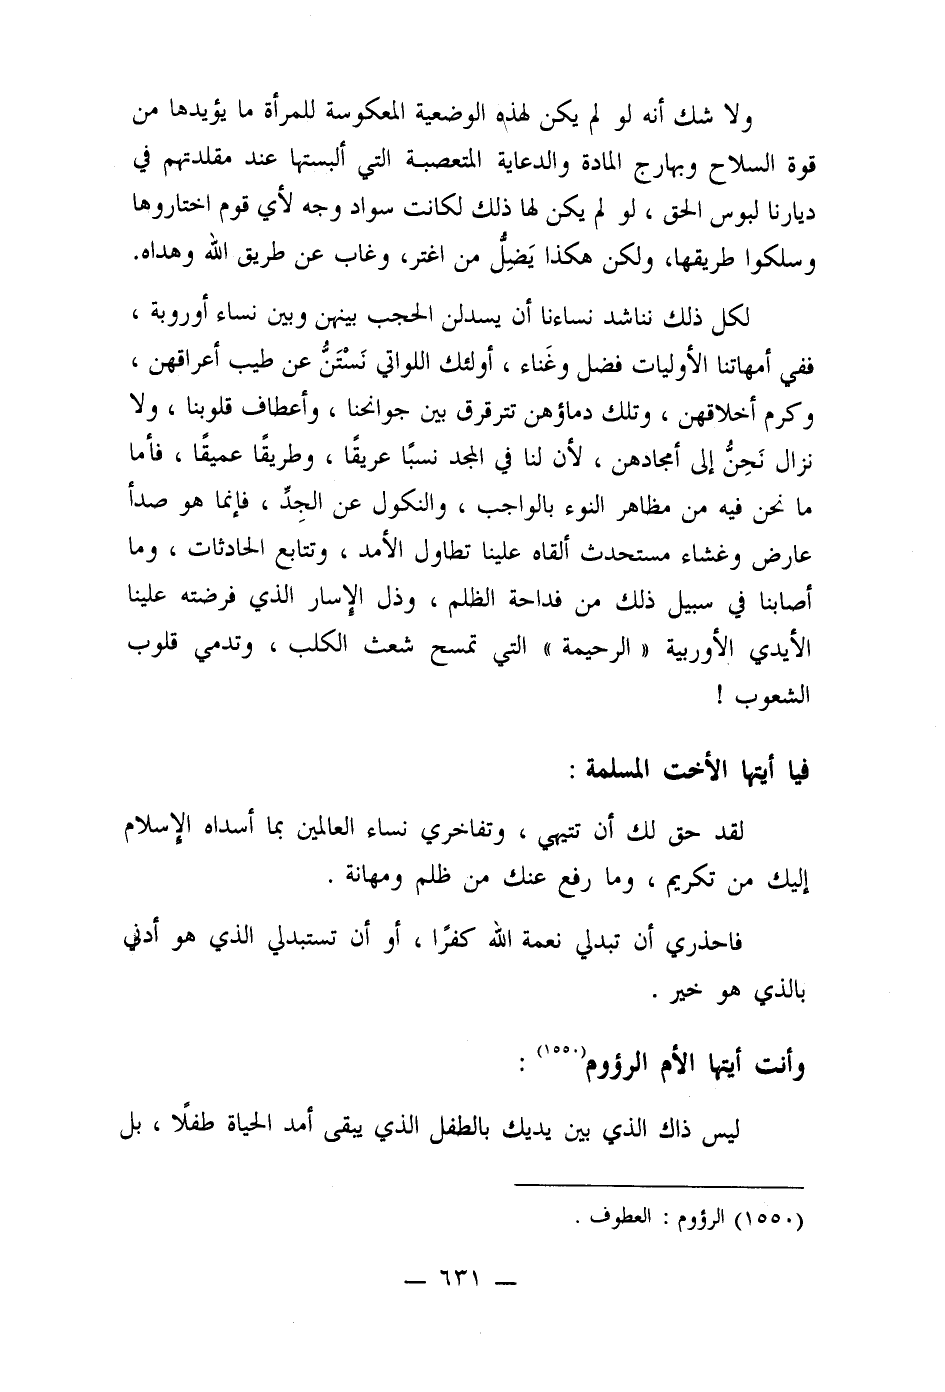 ولا شك أنه لو لم يكن لهذه الوضعية المعكوسة للمرأة ما يؤيدها من
قوة السلاح وبهارج المادة والدعاية المتعصبة التي ألبستها عند مقلدتهم في
ديارنا لبوس الحق ، لو لم يكن لها ذلك لكانت سواد وجه لأي قوم اختاروها
وسلكوا طريقها، ولكن هكذا يَضِلُّ من اغتر، وغاب عن طريق الله وهداه.
لكل ذلك نناشد نساءنا أن يسدلن الحجب بينهن وبين نساء أوروبة ،
ففي أمهاتنا الأوليات فضل وغَناء ، أولئك اللواتي نَسْتَنُّ عن طيب أعراقهن ،
وكرم أخلاقهن ، وتلك دماؤهن تترقرق بين جوانحنا ، وأعطاف قلوبنا ، ولا
نزال نَحِنُّ إلى أمجادهن ، لأن لنا في المجد نسبًا عريقًا ، وطريقًا عميقًا ، فأما
ما نحن فيه من مظاهر النوء بالواجب ، والنكول عن الجِدِّ ، فإنما هو صدأ
عارض وغشاء مستحدث ألقاه علينا تطاول الأمد ، وتتابع الحادثات ، وما
أصابنا في سبيل ذلك من فداحة الظلم ، وذل الإسار الذي فرضته علينا
الأيدي الأوربية « الرحيمة » التي تمسح شعث الكلب ، وتدمي قلوب
الشعوب !
فيا أيتها الأخت المسلمة :
لقد حق لك أن تتيهي ، وتفاخري نساء العالمين بما أسداه الإسلام
إليك من تكريم ، وما رفع عنك من ظلم ومهانة .
فاحذري أن تبدلي نعمة الله كفرًا ، أو أن تستبدلي الذي هو أدنى
بالذي هو خير .
وأنت أيتها الأم الرؤوم(١٥٥٠) :
ليس ذاك الذي بين يديك بالطفل الذي يبقى أمد الحياة طفلًا ، بل
(١٥٥٠) الرؤوم : العطوف .
— ٦٣١ —